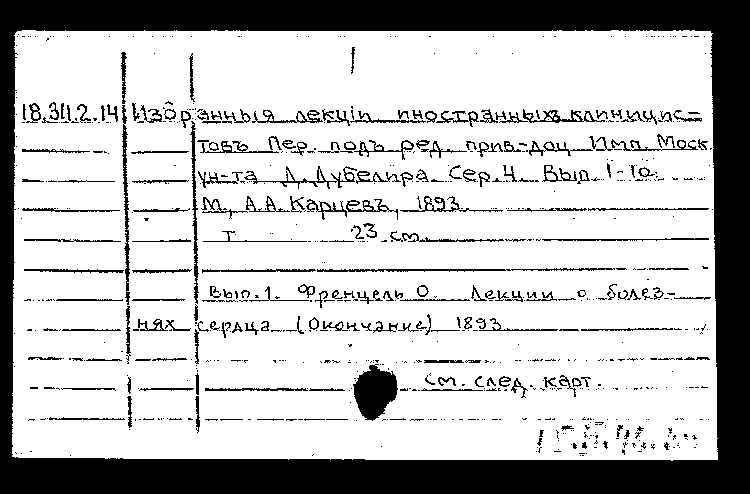 18.311.2.14 Избранныя лекціи иностранныхъ клиницис=
товъ Пер. подъ ред. прив.-доц Имп. Моск
ун-та Д. Дубелира. Сер. 4. Вып. 1-10.
М., А.А. Карцевъ, 1893.
т 23 см.
Вып. 1. Френцель О. Лекции о болез-
нях сердца (Окончание) 1893
См. след. карт.